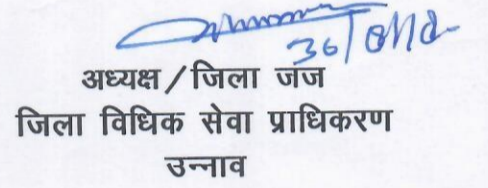 अध्यक्ष / जिला जज
जिला विधिक सेवा प्राधिकरण
उन्नाव